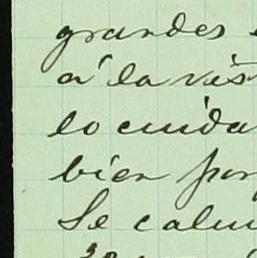 grandes
á la vis
lo cuida
bien por
Se calm